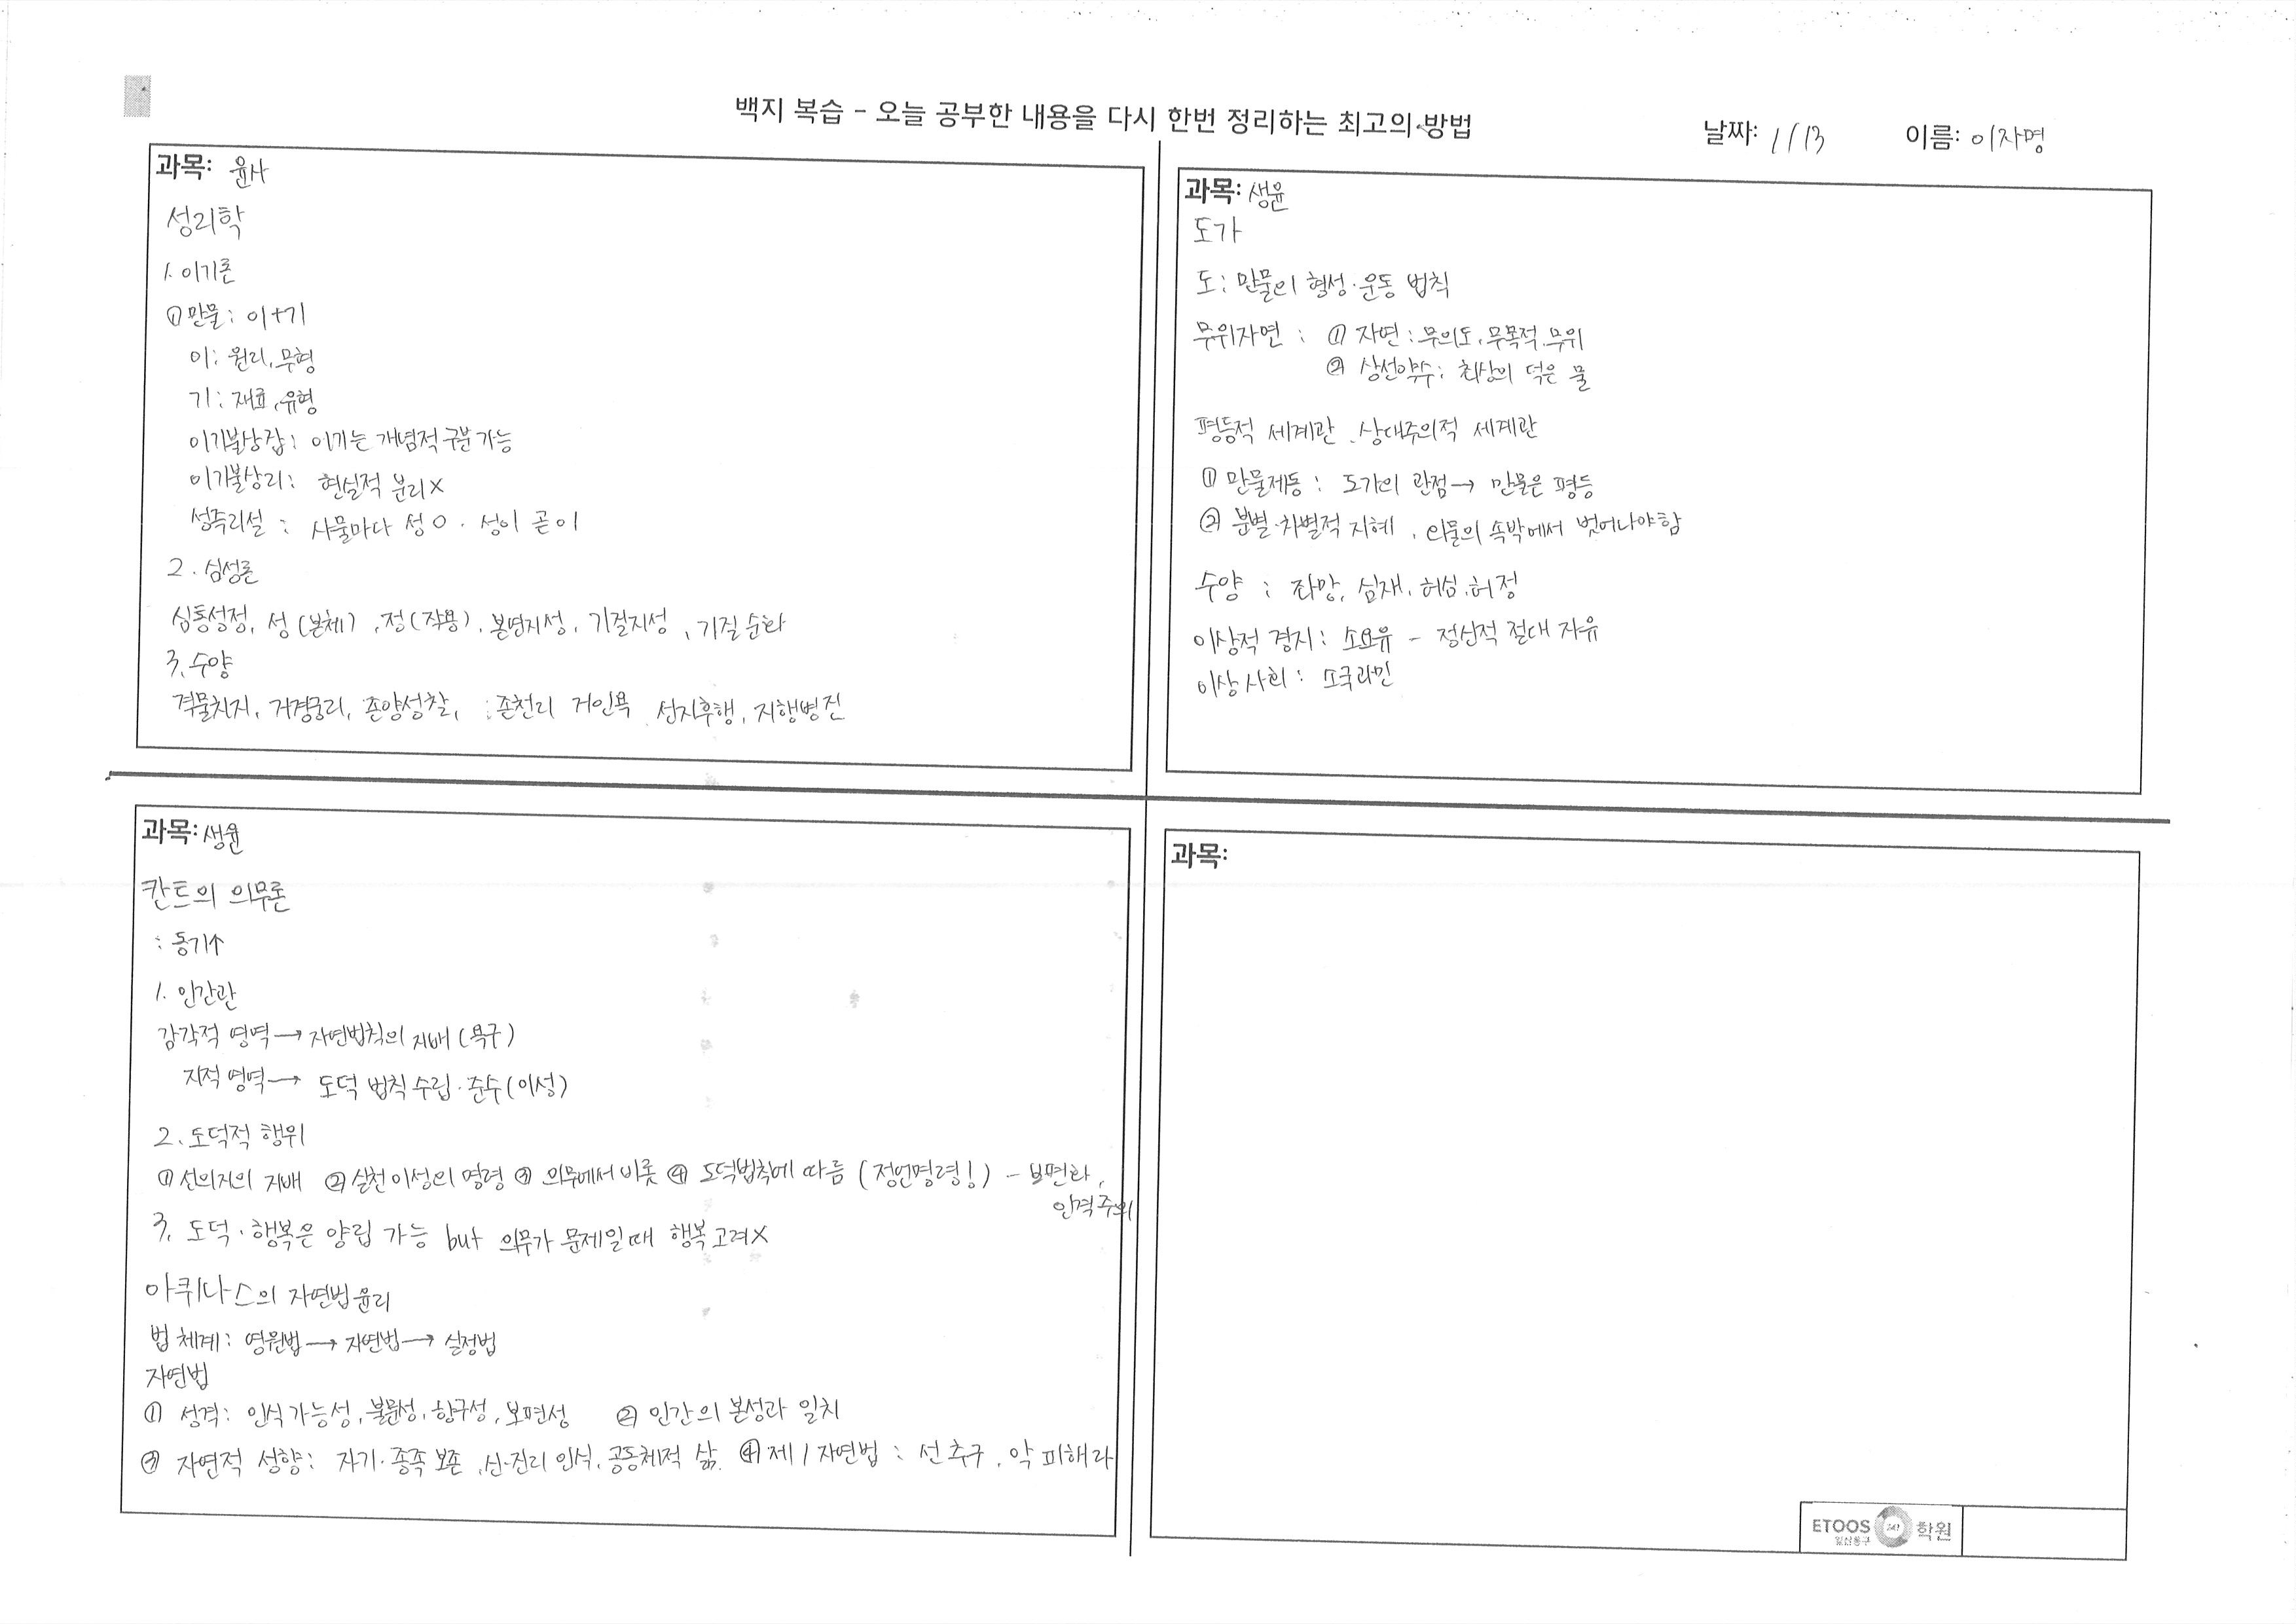 백지 복습 - 오늘 공부한 내용을 다시 한번 정리하는 최고의 방법
날짜: 1/13 이름: 이자명
과목: 윤사
성리학
1. 이기론
① 만물: 이+기
이: 원리, 무형
기: 재료, 유형
이기불상잡: 이기는 개념적 구분 가능
이기불상리: 현실적 분리X
성즉리설 : 사물마다 성 O. 성이 곧 이
2. 심성론
심통성정, 성(본체), 정(작용), 본연지성, 기질지성, 기질 순화
3. 수양
격물치지, 거경궁리, 존양성찰, : 존천리 거인욕 선지후행, 지행병진
과목: 생윤
도가
도: 만물의 형성·운동 법칙
무위자연 : ① 자연: 무의도, 무목적, 무위
② 상선약수: 최상의 덕은 물
평등적 세계관, 상대주의적 세계관
① 만물제동 : 도가의 관점→ 만물은 평등
② 분별·차별적 지혜, 외물의 속박에서 벗어나야함
수양 : 좌망, 심재, 허심, 허정
이상적 경지: 소요유 - 정신적 절대 자유
이상 사회: 소국과민
과목: 생윤
칸트의 의무론
: 동기↑
1. 인간관
감각적 영역→ 자연법칙의 지배(욕구)
지적 영역→ 도덕 법칙 수립·준수(이성)
2. 도덕적 행위
① 선의지의 지배 ② 실천이성의 명령 ③ 의무에서 비롯 ④ 도덕법칙에 따름 (정언명령!) - 보편화,
인격주의
3. 도덕·행복은 양립 가능 but 의무가 문제일때 행복 고려X
아퀴나스의 자연법윤리
법 체계: 영원법→ 자연법→ 실정법
자연법
① 성격: 인식가능성, 불문성, 항구성, 보편성 ② 인간의 본성과 일치
③ 자연적 성향: 자기·종족 보존, 신·진리 인식, 공동체적 삶. ④ 제1자연법 : 선 추구, 악 피해라
과목:
ETOOS 247 학원